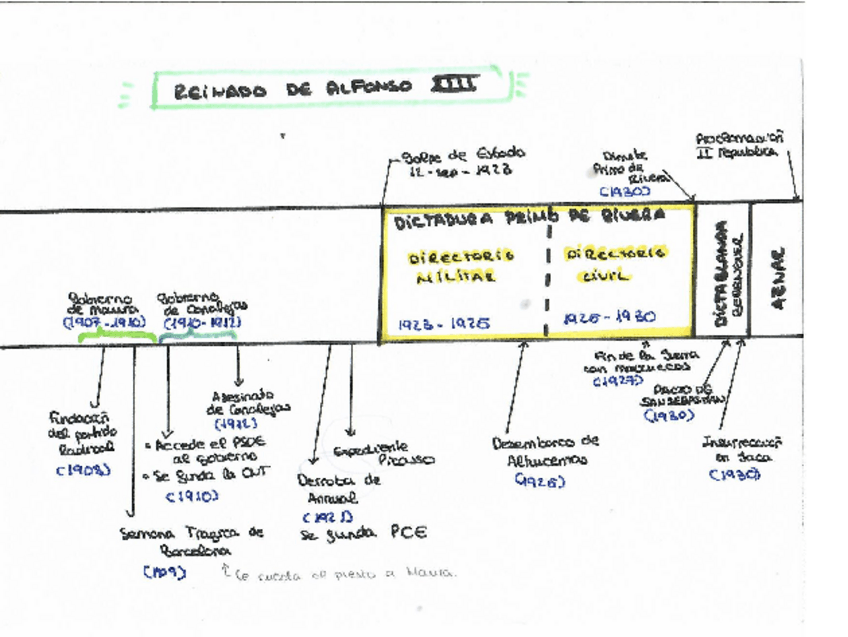 REINADO DE ALFONSO XIII
Golpe de Estado
12-sep-1923
Dimite
Primo de
Rivera
(1930)
Proclamación
II república
DICTADURA PRIMO DE RIVERA
DIRECTORIO
MILITAR
1923-1925
DIRECTORIO
CIVIL
1925-1930
DICTABLANDA
BERENGUER
AZNAR
Gobierno
de Maura
(1907-1910)
Gobierno
de Canalejas
(1910-1912)
Fundación
del partido
Radical
(1908)
Semana Trágica de
Barcelona
(1909)
↑ Le cuesta el puesto a Maura.
• Accede el PSOE
al gobierno
• Se funda la CNT
(1910)
Asesinato
de Canalejas
(1912)
Derrota de
Annual
(1921)
Se funda PCE
Expediente
Picasso
Desembarco de
Alhucemas
(1925)
Fin de la Guerra
con marruecos
(1927)
PACTO DE
SAN SEBASTIÁN
(1930)
Insurrección
en Jaca
(1930)